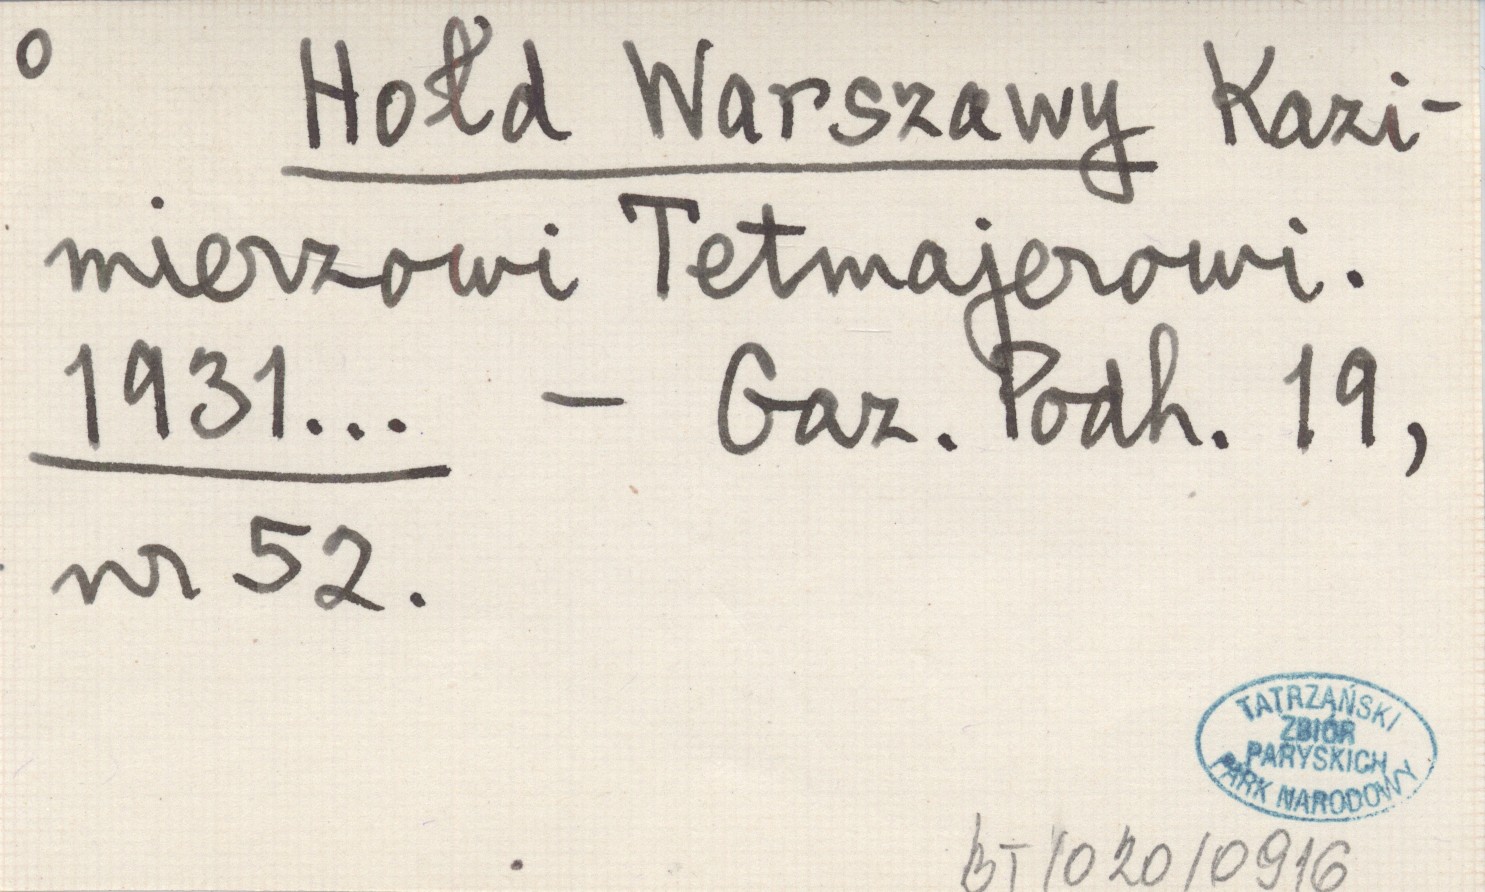 o Hołd Warszawy Kazi-
mierzowi Tetmajerowi.
1931... – Gaz. Podh. 19,
nr 52.
TATRZAŃSKI
ZBIÓR
PARYSKICH
PARK NARODOWY
BT/020/0916